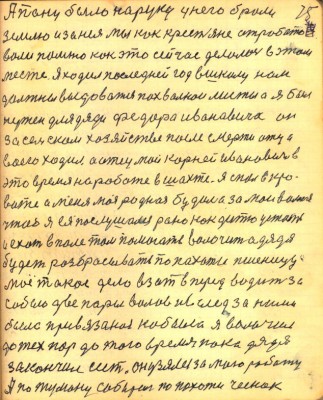 А пану было на руку у него брали 75
землю и за неи мы как крестяне отробато
вали помню как это сейчас делалос в этом
месте. Я ходил последней год в школу нам
должны выдоватся похвалной листы а я был
нужен для дяди федора ивановича он
за селском хозяйстве после смерти отца
своего ходил а отец мой корней иванович в
это время на роботе в шахте. Я спал в кро-
вате а меня моя родная будила за мои
чтоб я ей послушался рано как дитю устат
и ехат в поле там помогать волочит а дядя
будет розбрасывать по пахоти пшеницу
моё такое дело взят в перед водит за
собою две пары волов и в след за ними
была привязаная кобыла я волочил
до тех пор до того время пока дядя
закончил сеят. он узялся за мою работу
А по туману собирал по пахоти чеснок